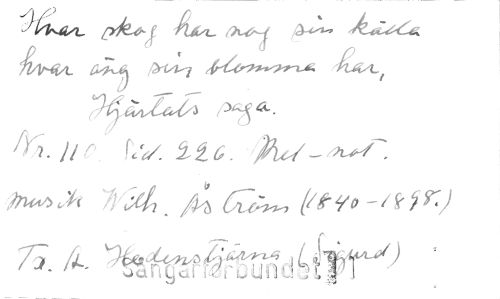 Hvar skog har nog sin källa
hvar äng sin blomma har,
Hjärtats saga.
Nr. 110. Sid. 226. Mel-not.
musik Wilh. Åström (1840-1898.)
Tx. A. Hedenstjärna (Sigurd)
Sångarförbundet